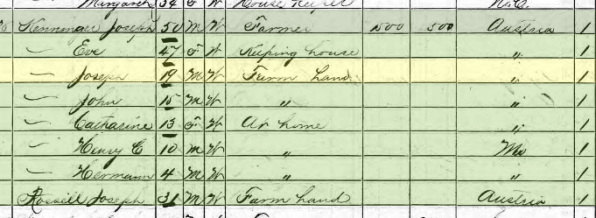 Margaret 34 F W House Keeper N.C.
Joseph 50 M W Farmer 1500 500 Austria 1
— Eve 47 F W Keeping house " 1
— Joseph 19 M W Farm hand " 1
— John 15 M W " " 1
— Catharine 13 F W At home " 1
— Henry E 10 M W " Mo 1
— Hermann 4 M W " " 1
Joseph 31 M W Farm hand Austria 1